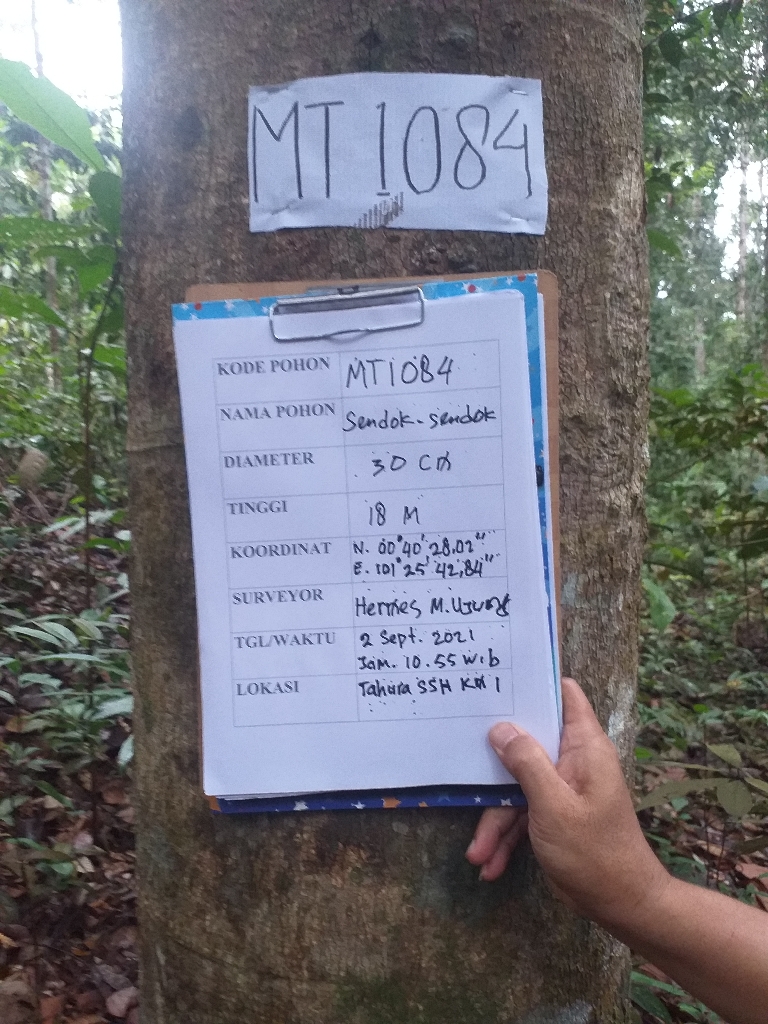 MT 1084
KODE POHON MT1084
NAMA POHON Sendok-sendok
DIAMETER 30 CM
TINGGI 18 M
KOORDINAT N. 00°40'28.02"
E. 101°25'42,84"
SURVEYOR Hermes M.Ujung
TGL/WAKTU 2 Sept. 2021
Jam. 10.55 Wib
LOKASI Tahura SSH KM 1